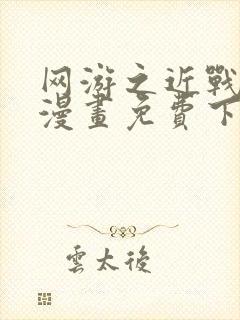 网游之近戰
漫畫免費下
雲太後